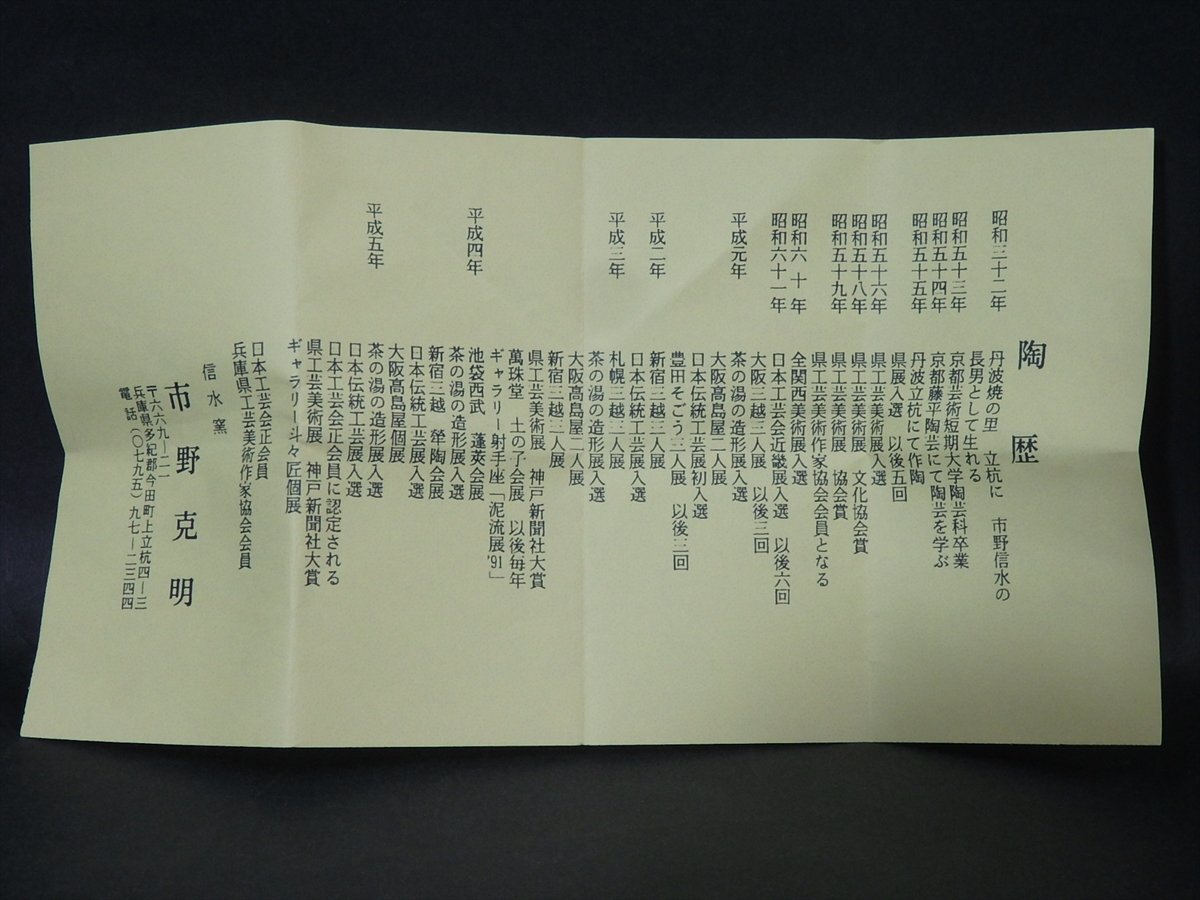 陶歴
昭和三十二年 丹波焼の里 立杭に 市野信水の
長男として生れる
昭和五十三年 京都芸術短期大学陶芸科卒業
昭和五十四年 京都藤平陶芸にて陶芸を学ぶ
昭和五十五年 丹波立杭にて作陶
県展入選 以後五回
昭和五十六年 県工芸美術展入選
昭和五十八年 県工芸美術展 文化協会賞
昭和五十九年 県工芸美術展 協会賞
県工芸美術作家協会会員となる
昭和六十年 全関西美術展入選
昭和六十一年 日本工芸会近畿展入選 以後六回
大阪三越三人展 以後三回
平成元年 茶の湯の造形展入選
大阪髙島屋二人展
日本伝統工芸展初入選
豊田そごう三人展 以後三回
平成二年 新宿三越三人展
平成三年 日本伝統工芸展入選
札幌三越二人展
茶の湯の造形展入選
大阪髙島屋二人展
新宿三越二人展
県工芸美術展 神戸新聞社大賞
萬珠堂 土の子会展 以後毎年
ギャラリー射手座「泥流展'91」
平成四年 池袋西武 蓬莢会展
茶の湯の造形展入選
新宿三越 犖陶会展
日本伝統工芸展入選
大阪髙島屋個展
平成五年 茶の湯の造形展入選
日本伝統工芸展入選
日本工芸会正会員に認定される
県工芸美術展 神戸新聞社大賞
ギャラリー斗々匠個展
日本工芸会正会員
兵庫県工芸美術作家協会会員
信水窯
市野克明
〒六六九―二一
兵庫県多紀郡今田町上立杭四―三
電話(〇七九五)九七―二三四四